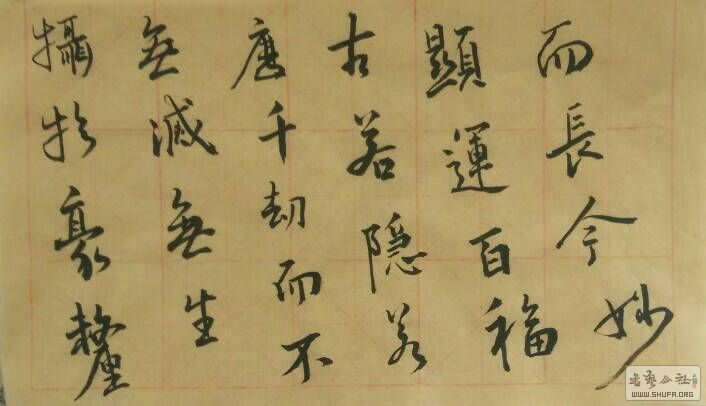 而長今妙
顯運百福
古若隐若
歷千劫而不
無滅無生
攝於豪釐
书艺公社
WWW.SHUFA.ORG